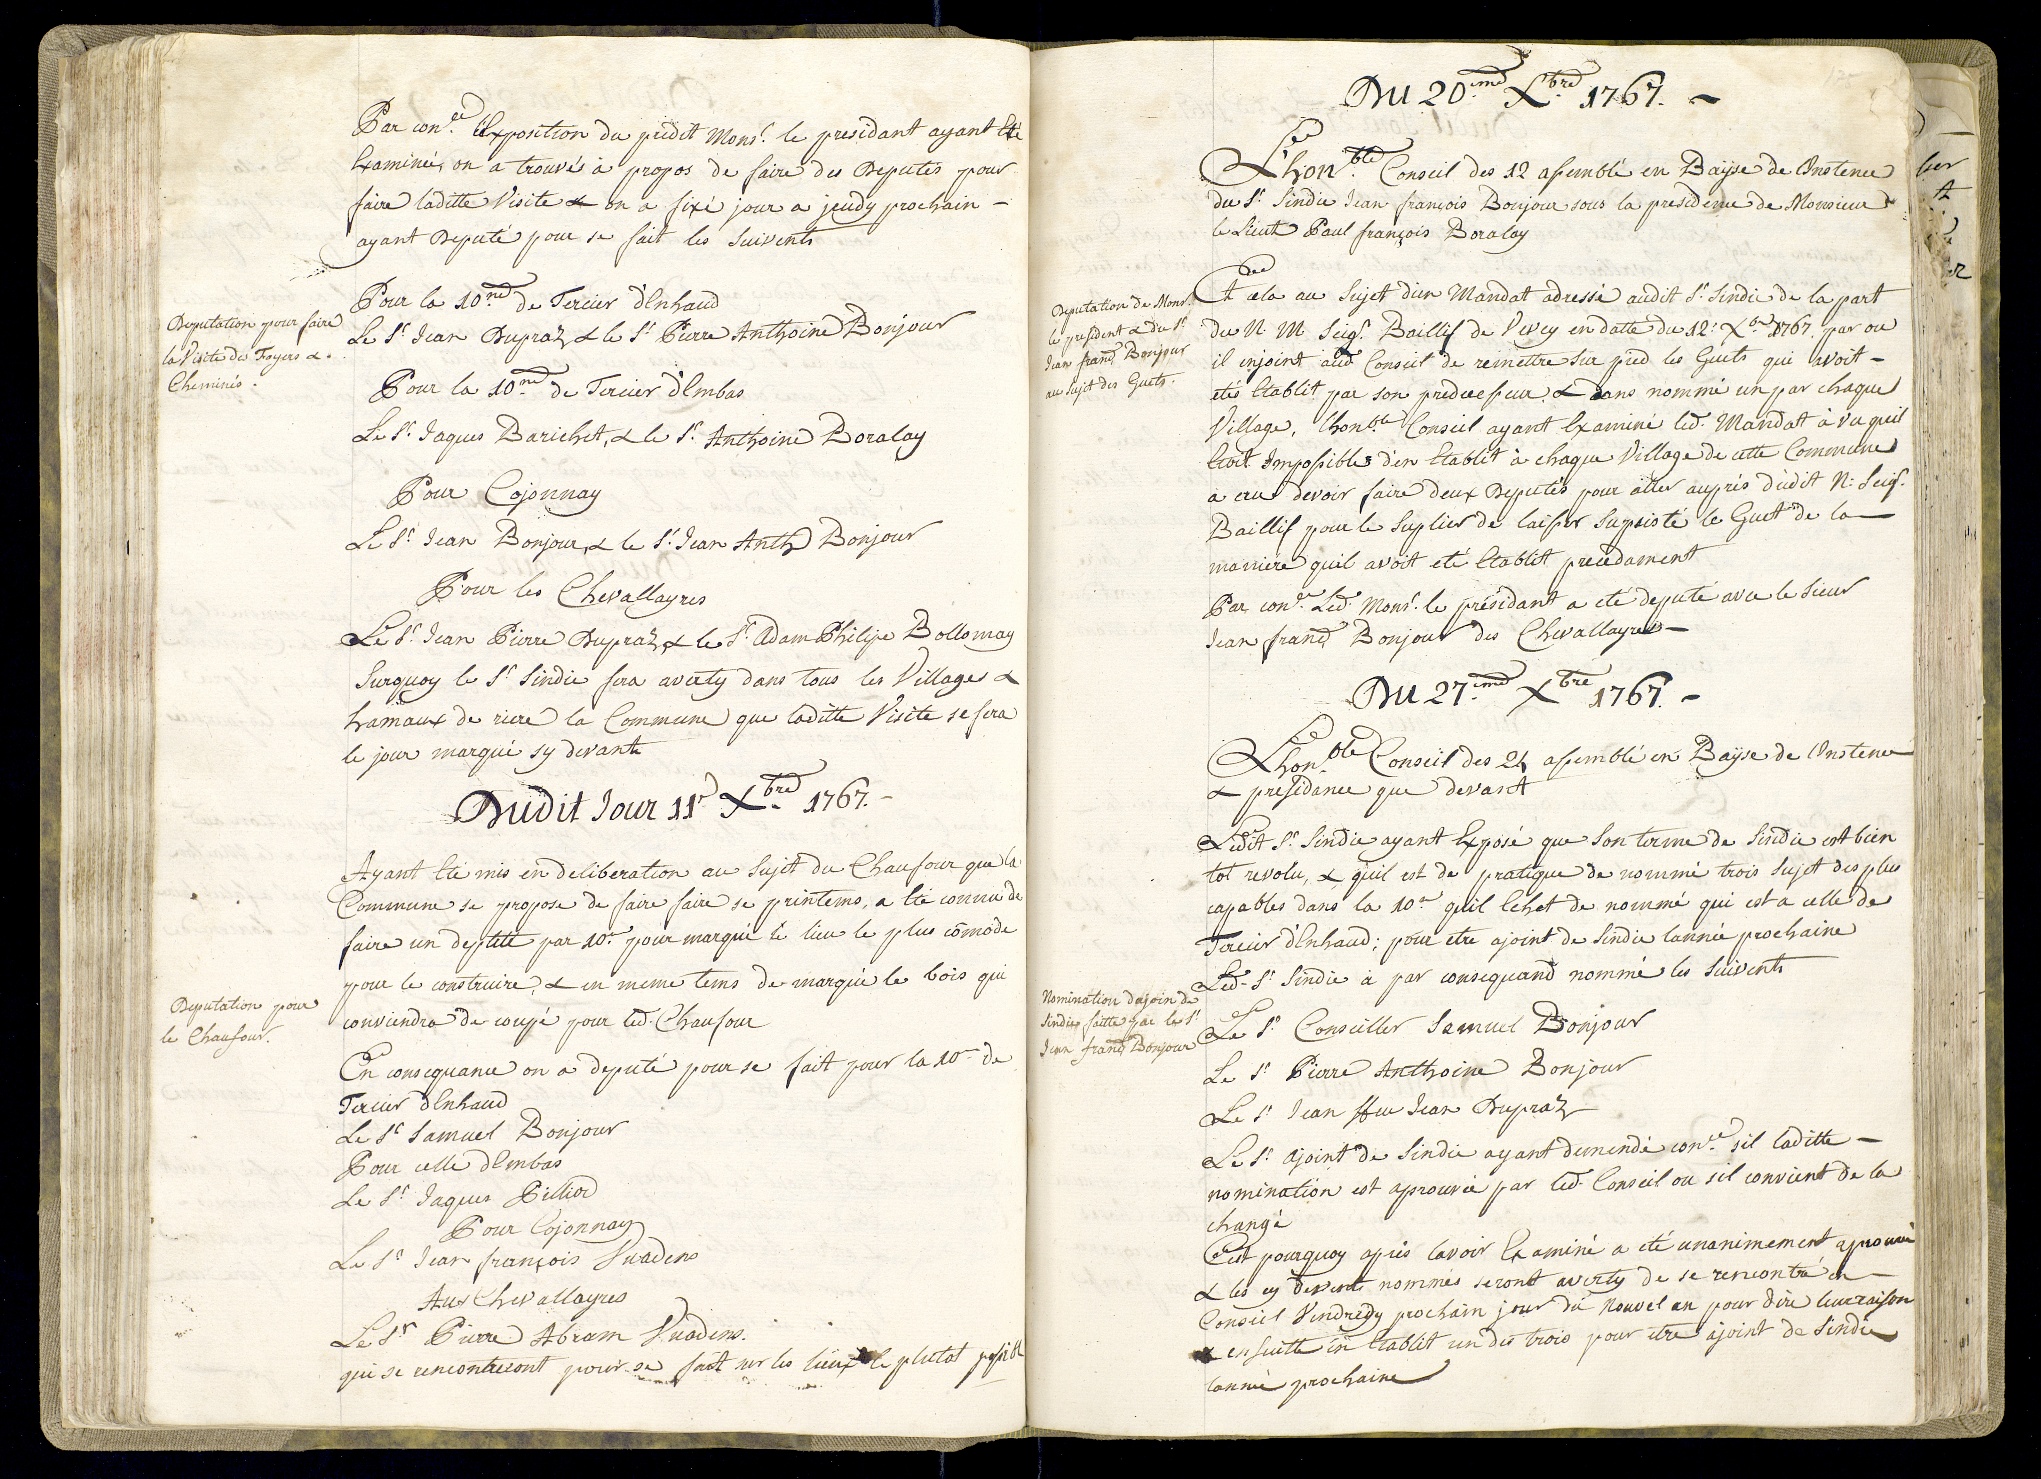 Par con.ce l'Exposition du prédit Mons.r le presidant ayant Eté
Examinée, on a trouvés à propos de faire des Deputés pour
faire laditte Visite & on a fixé jour a jeudy prochain -
ayant Deputé pour se fait les Suivents
Pour la 10.ne de Tercier d'Enhaud
Deputation pour faire
la Visite des Foyers &
Cheminés.
Le S.r Jean Dupraz, & le S.r Pierre Anthoine Bonjour
Pour la 10.ne de Tercier d'Embas
Le S.r Jaques Barichet, & le S.r Anthoine Boralay
Pour Cojonnay
Le S.r Jean Bonjour, & le S.r Jean Anth. Bonjour
Pour les Chevallayres
Le S.r Jean Pierre Dupraz, & le S.r Adam Philipe Bollomay
Surquoy le S.r Sindic fera averty dans tous les Village &
hamaux de riere la Commune que laditte Visite se fera
le jour marqué sy devant
Dudit Jour 11.e X.bre 1767. -
Ayant Eté mis en deliberation au Sujet du Chaufour que la
Commune se propose de faire faire se printems, a Eté connu de
faire un deputé par 10.e pour marqué le lieu le plus comode
pour le construire, & en meme tems de marqué le bois qui
Deputation pour
le Chaufour.
conviendra de coupé pour led. Chaufour
En consequance on a deputé pour se fait pour la 10.e de
Tercier d'Enhaud
Le S.r Samuel Bonjour
Pour celle d'Embas
Le S.r Jaques Pilliod
Pour Cojonnay
Le S.r Jean françois Vuadens
Aux Chevallayres
Le S.r Pierre Abram Vuadens.
qui se rencontreront pour se fait sur les lieux le plutot possible
Du 20.ime X.bre 1767. -
L'hon.ble Conseil des 12 assemblé en Bayse de l'Instence
du S.r Sindic Jean françois Bonjour sous la presidence de Monsieur
le Lieut. Paul françois Boralay
Deputation de Mons.r
le president & du S.r
Jean franç. Bonjour
au sujet des Guets.
Et cela au Sujet d'un Mandat adressé audit S.r Sindic de la part
du N. M. Seig.r Baillif de Vevey en datte du 12.e X.bre 1767. par ou
il injoint aud. Conseil de remettre sur pied les Guets qui avoit -
etés Etablit par son predecesseur, & dans nommé un par chaque
Village, l'hon.ble Conseil ayant Examiné led. Mandat à vu qu'il
Etoit Impossible d'en Etablit à chaque Village de cette Commune
a cru devoir faire deux Deputés pour aller auprès dudit N. Seig.r
Baillif pour le Suplier de laisser Supsisté le Guet de la
maniere quil avoit eté Etablit precedament
Par con.ce Led. Mons.r le présidant a eté deputé avec le Sieur
Jean franç. Bonjour des Chevallayres -
Du 27.ime X.bre 1767. -
L'hon.ble Conseil des 24 assemblé en Bayse de l'Instence
& présidance que devant
Ledit S.r Sindic ayant Exposé que Son terme de Sindic est bien
tot revolu, & qu'il est de pratique de nommé trois Sujet des plus
capables dans la 10.e quil Echet de nommé qui est a celle de
Tercier d'Enhaud; pour etre ajoint de Sindic lannée prochaine
Led. S.r Sindic à par consequand nommé les Suivents
Nomination d'ajoin de
Sindic faitte par le S.r
Jean franç. Bonjour
Le S.r Conseiller Samuel Bonjour
Le S.r Pierre Anthoine Bonjour
Le S.r Jean ffeu Jean Dupraz
Le S.r ajoint de Sindic ayant demendé con.ce sil laditte -
nomination est aprouvée par led. Conseil ou sil convient de la
changé
C'est pourquoy après lavoir Examiné a eté unanimement aprouvé
& les cy devents nommés seront averty de se rencontré en
Conseil Vendredy prochain jour du Nouvel an pour dire leur raison
& en suitte en Etablit un des trois pour etre ajoint de Sindic
lannée prochaine